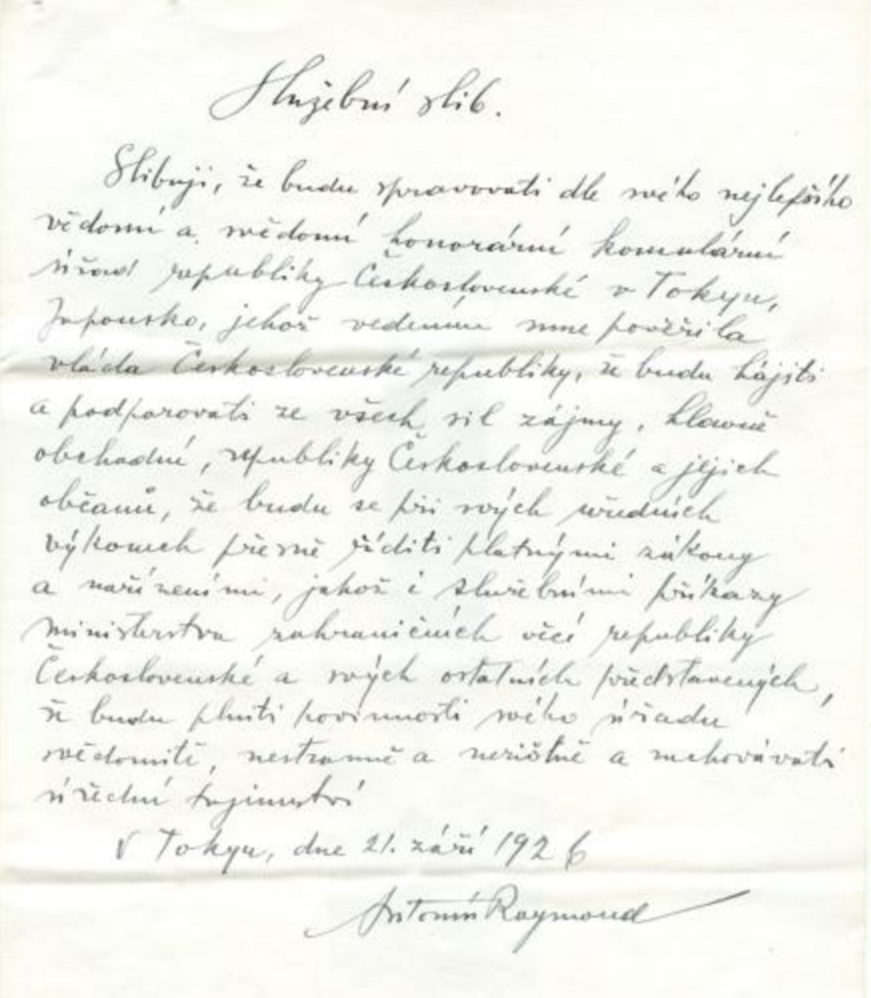 Služební slib.
Slibuji, že budu spravovati dle svého nejlepšího
vědomí a svědomí honorární konsulární
úřad republiky Československé v Tokyu,
Japonsko, jehož vedením mne pověřila
vláda Československé republiky, že budu hájiti
a podporovati ze všech sil zájmy, hlavně
obchodní, republiky Československé a jejich
občanů, že budu se při svých úředních
výkonech přesně říditi platnými zákony
a nařízeními, jakož i služebními příkazy
ministerstva zahraničních věcí republiky
Československé a svých ostatních představených,
že budu plniti povinnosti svého úřadu
svědomitě, nestranně a nezištně a zachovávati
úřední tajemství
V Tokyu, dne 21. září 1926
Antonín Raymond